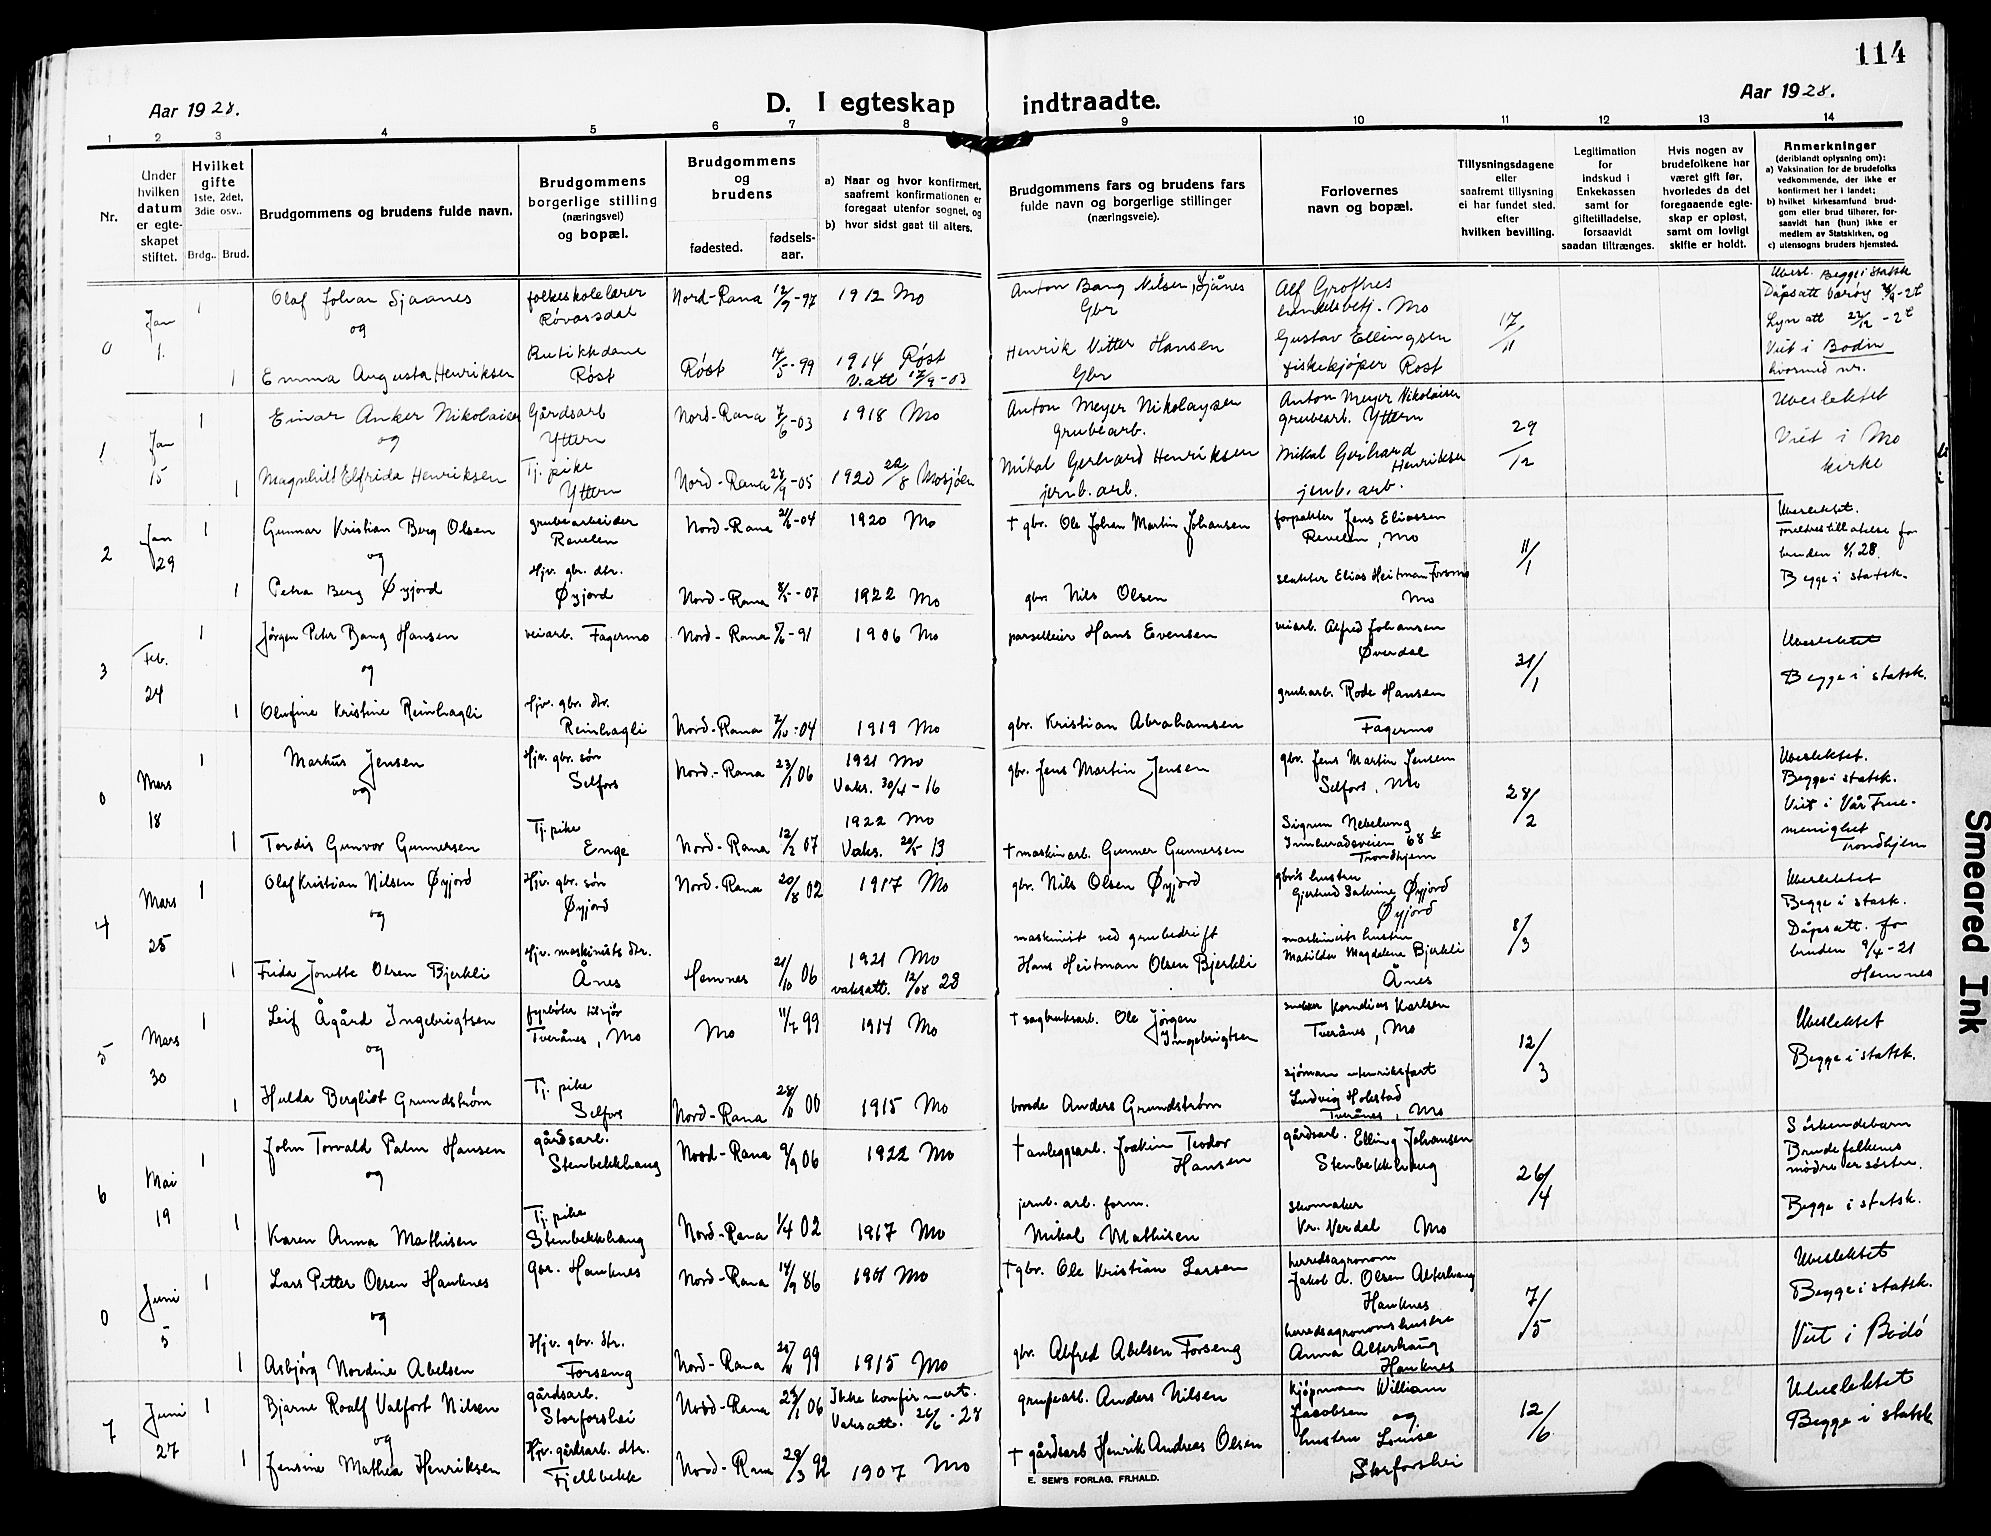 114
Aar 1928.
D. I egteskap indtraadte.
Aar 1928.
1 2 3 4 5 6 7 8 9 10 11 12 13 14
Nr.
Under hvilken datum er egte-skapet stiftet.
Hvilket gifte 1ste, 2det, 3die osv..
Brdg.. Brud.
Brudgommens og brudens fulde navn.
Brudgommens borgerlige stilling (næringsvei) og bopæl.
Brudgommens og brudens
fødested.
fødsels-aar.
a) Naar og hvor konfirmert, saafremt konfirmationen er foregaat utenfor sognet, og
b) hvor sidst gaat til alters.
Brudgommens fars og brudens fars fulde navn og borgerlige stillinger (næringsveie).
Forlovernes navn og bopæl.
Tillysningsdagene eller saafremt tillysning ei har fundet sted, efter hvilken bevilling.
Legitimation for indskud i Enkekassen samt for giftetilladelse, forsaavidt saadan tiltrænges.
Hvis nogen av brudefolkene har været gift før, hvorledes da det foregaaende egte-skap er opløst, samt om lovligt skifte er holdt.
Anmerkninger
(deriblandt oplysning om):
a) Vaksination for de brudefolks vedkommende, der ikke er konfirmert her i landet;
b) hvilket kirkesamfund brud-gom eller brud tilhører, for-saavidt han (hun) ikke er medlem av Statskirken, og
c) utensogns bruders hjemsted.
0 Jan 1. 1 Olaf Johan Sjaanes folkeskolelærer Røvassdal Nord-Rana 12/9-97 1912 Mo Anton Bang Nilsen, Sjånes Gbr Alf Grotnes handelsbetj. Mo 17/11 Ubesl. Begge i statsk
og Dåpsatt Værøy
1 Emma Augusta Henriksen Butikkdame Røst Røst 14/5-99 1914 Røst V.att 17/9-03 Henrik Vitter Hansen Gbr Gustav Ellingsen fiskekjøper Rost Lysn att 22/12 Viet i Bodin hvormed nr.
1 Jan 15 1 Einar Anker Nikolaisen Gårdsarb Yttern Nord-Rana 7/6-03 1918 Mo Anton Meyer Nikolaysen grubearb. Anton Meyer Nikolaisen grubearb. Yttern 29/12 Ubeslektet
og Viet i Mo kirke
1 Magnhild Elfrida Henriksen Tj. pike Yttern Nord-Rana 28/9-05 1920 22/8 Mosjøen Mikal Gerhard Henriksen jernb. arb. Mikal Gerhard Henriksen jenb. arb.
2 Jan 29 1 Gunnar Kristian Berg Olsen grubearbeider Revelen Nord-Rana 21/6-04 1920 Mo † gbr. Ole Johan Martin Johansen forpakter Jens Eliassen Revelen, Mo 11/1 Ubeslektet. Foreldres tillatelse for bruden 9/1 28.
og
1 Petra Berg Øyjord Hjv. gbr. dtr. Øyjord Nord-Rana 8/5-07 1922 Mo gbr. Nils Olsen slakter Elias Heitman Forsmo Mo Begge i statsk.
3 Feb. 24 1 Jørgen Peter Bang Hansen veiarb. Fagermo Nord-Rana 5/6-91 1906 Mo parselleier Hans Evensen veiarb. Alfred Johansen Øverdal 31/1 Ubeslektet
og
1 Olufine Kristine Reinhagli Hjv. gbr. dtr. Reinhagli Nord-Rana 2/10-04 1919 Mo gbr. Kristian Abrahamsen grubarb. Rode Hansen Fagermo Begge i statsk.
0 Mars 18 1 Markus Jensen Hjv. gbr. søn Selfors Nord-Rana 23/1 06 1921 Mo Vaks. 30/4-16 gbr. Jens Martin Jensen gbr. Jens Martin Jensen Selfors, Mo 28/2 Ubeslektet. Begge i statsk.
og
1 Tordis Gunvor Gunnersen Tj. pike Enge Nord-Rana 12/2 07 1922 Mo Vaks. 20/5 13 † maskinarb. Gunner Gunnersen Sigrun Nebelung Innheradsveien 68 b Trondhjem Viet i Vår Frue-menighet Trondhjem
4 Mars 25 1 Olaf Kristian Nilsen Øyjord Hjv. gbr. søn Øyjord Nord-Rana 20/8 02 1917 Mo gbr. Nils Olsen Øyjord gbr's hustru Gjertrud Øyjord Øyjord 8/3 Ubeslektet Begge i stask.
og
1 Frida Jonette Olsen Bjerkli Hjv. maskinists dtr. Ånes Hemnes 21/10 06 1921 Mo vaksatt. 12/08 28 maskinist ved grubedrift Hans Heitman Olsen Bjerkli maskinists hustru Matilda Magdalena Bjerkli Ånes Dåpsatt. for bruden 9/4-21 Hemnes
5 Mars 30 1 Leif Ågård Ingebrigtsen fyrbøter tilsjøs Tverånes, Mo Mo 11/7 99 1914 Mo † sagbruksarb. Ole Jørgen Ingebrigtsen Kornelius Karlsen Tverånes, Mo 12/3 Ubeslektet
og
1 Hulda Bergliot Grundstrøm Tj. pike Selfors Nord-Rana 00 1915 Mo bonde Anders Grundstrøm sjømann utenriksfart Ludvig Holestad Tverånes, Mo Begge i statsk.
6 Mai 19 1 John Torvald Palm Hansen gårdsarb. Stenbekkhaug Nord-Rana 9/9 06 1922 Mo † anleggsarb. Joakim Teodor Hansen gårdsarb. Elling Johansen Stenbekkhaug 26/4 Søskendebarn Brudefolkenes mødre er søstre.
og
1 Karen Anna Mathisen Tj. pike Stenbekkhaug Nord-Rana 1/4 02 1917 Mo jernb. arb. form. Mikal Mathisen skomaker Kr. Verdal Mo Begge i statsk.
0 Juni 5 1 Lars Petter Olsen Hauknes gbr. Hauknes Nord-Rana 14/9 86 1901 Mo † gbr. Ole Kristian Larsen herredsagronom Jakob A. Olsen Alterhaug Hauknes 7/5 Ubeslektet Begge i statsk.
og
1 Asbjørg Nordine Abelsen Hjv. gbr. dtr. Forseng Nord-Rana 99 1915 Mo gbr. Alfred Abelsen Forseng herredsagronoms hustru Anna Alterhaug Hauknes Viet i Bodø
7 Juni 27 1 Bjarne Roalf Valfort Nilsen gårdsarb. Storforshei Nord-Rana 23/1 06 Ikke konfirmert. Vaksatt. 26/6-28 grubearb. Anders Nilsen kjøpmann William Jacobsen og hustru Louise Storforshei 12/6 Ubeslektet Begge i statsk
og
1 Jensine Mathea Henriksen Hjv. gårdsarb. dtr. Fjellbekk Nord-Rana 29/3 92 1907 Mo † gårdsarb Henrik Andreas Olsen
E. SEM'S FORLAG, FR.HALD.
Smeared Ink